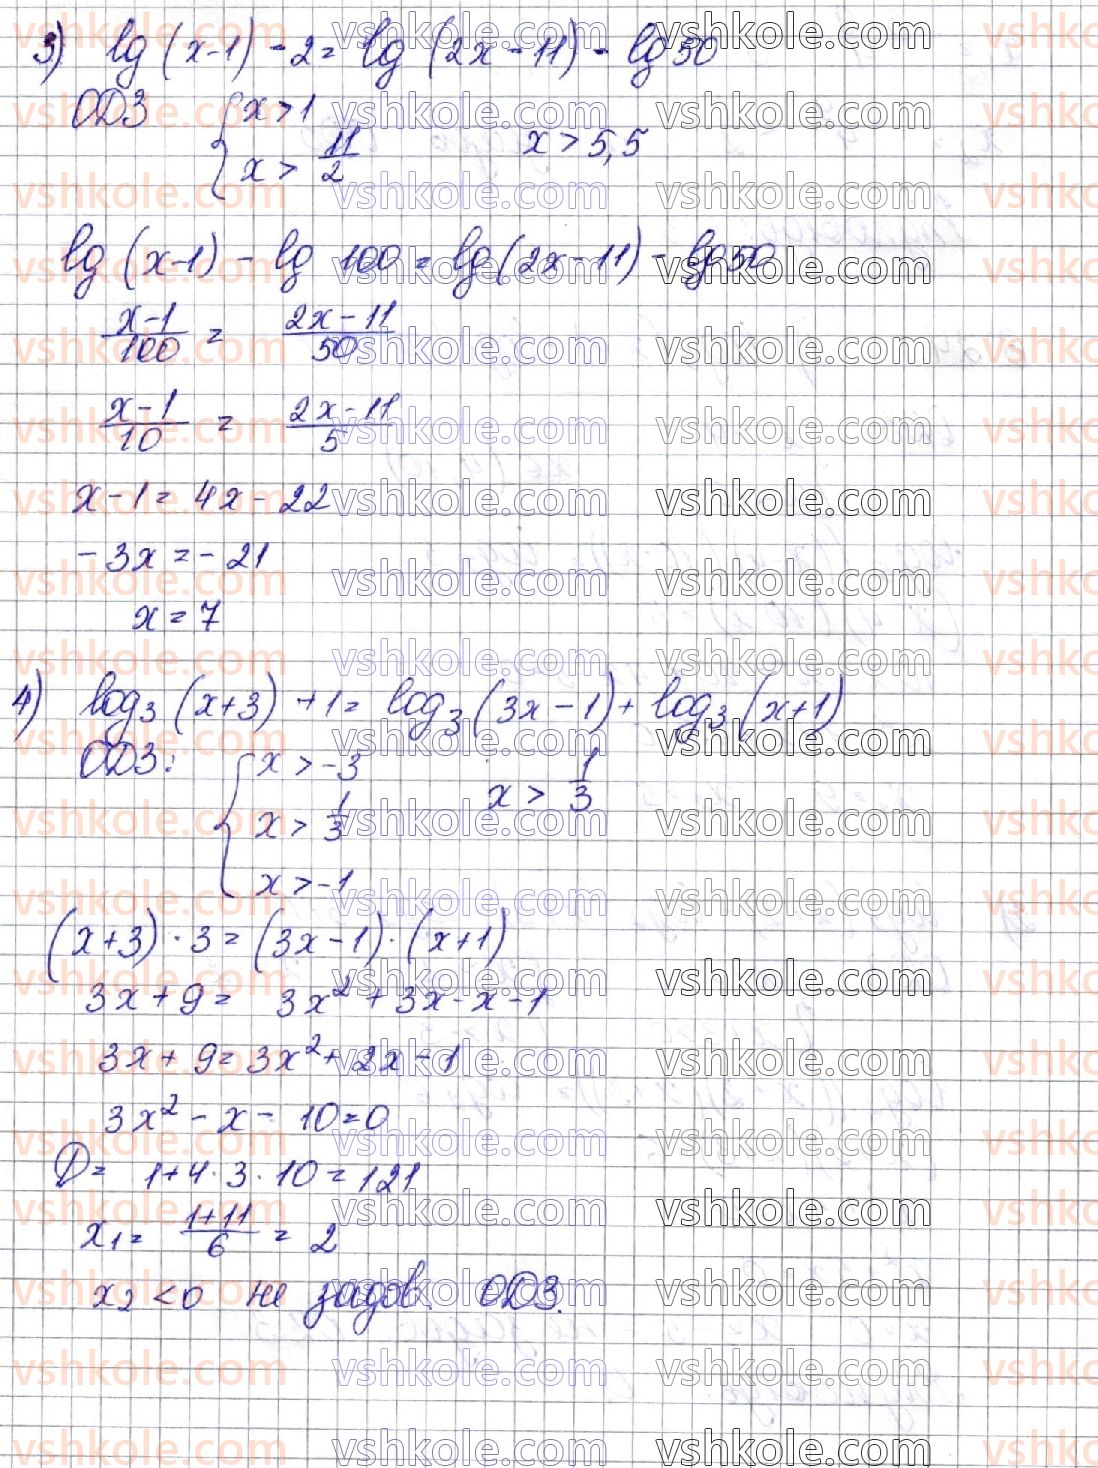 3) lg(x-1) - 2 = lg(2x-11) - lg50
ОДЗ { x > 1
x > 11/2
x > 5,5
lg(x-1) - lg 100 = lg(2x-11) - lg50
x-1/100 = 2x-11/50
x-1/10 = 2x-11/5
x-1 = 4x-22
-3x = -21
x = 7
4) log₃(x+3) + 1 = log₃(3x-1) + log₃(x+1)
ОДЗ: { x > -3
x > 1/3
x > -1
x > 1/3
(x+3)·3 = (3x-1)·(x+1)
3x+9 = 3x²+3x-x-1
3x+9 = 3x²+2x-1
3x²-x-10=0
D = 1+4·3·10 = 121
x₁ = 1+11/6 = 2
x₂ < 0 не задов. ОДЗ.
vshkole.com